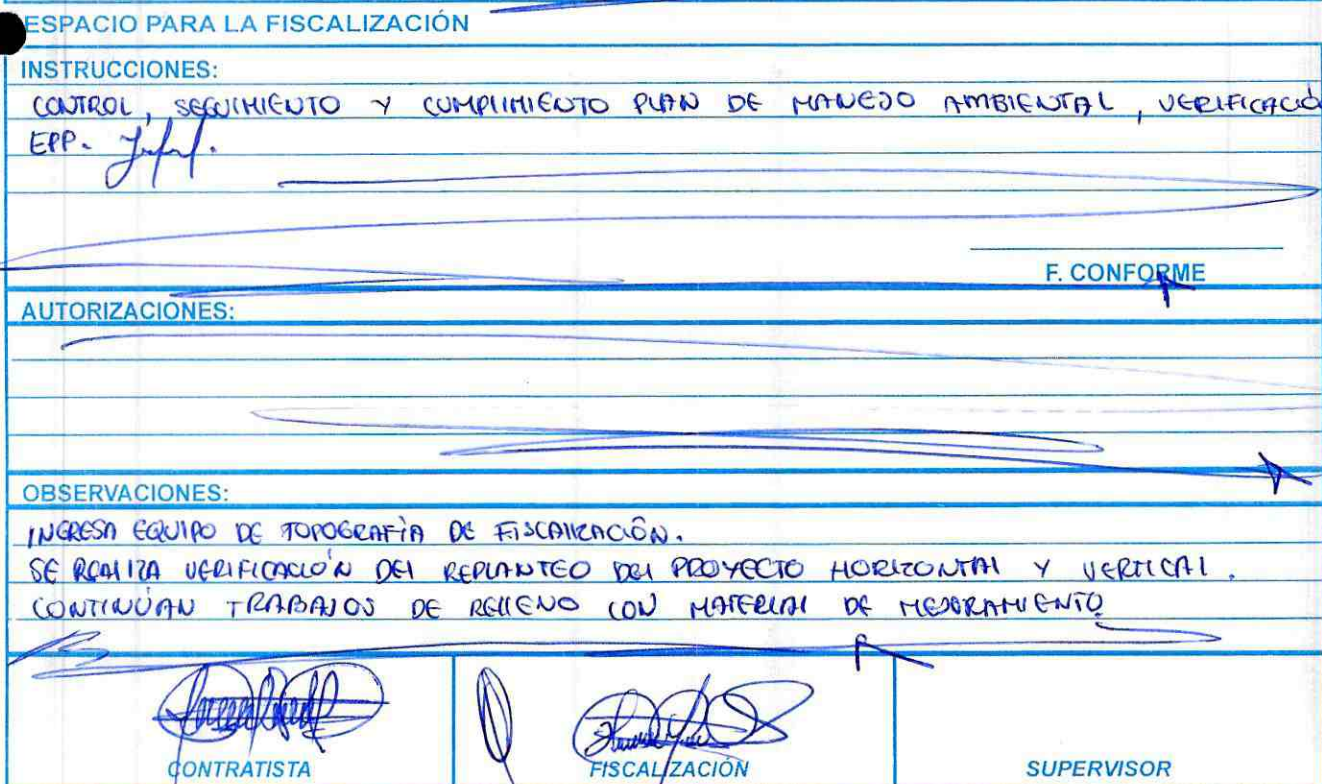 ESPACIO PARA LA FISCALIZACIÓN
INSTRUCCIONES:
CONTROL, SEGUIMIENTO Y CUMPLIMIENTO PLAN DE MANEJO AMBIENTAL, VERIFICACIÓ
EPP.
F. CONFORME
AUTORIZACIONES:
OBSERVACIONES:
INGRESA EQUIPO DE TOPOGRAFÍA DE FISCALIZACIÓN.
SE REALIZA VERIFICACIÓN DEL REPLANTEO DEL PROYECTO HORIZONTAL Y VERTICAL.
CONTINÚAN TRABAJOS DE RELLENO CON MATERIAL DE MEJORAMIENTO
CONTRATISTA
FISCALIZACIÓN
SUPERVISOR